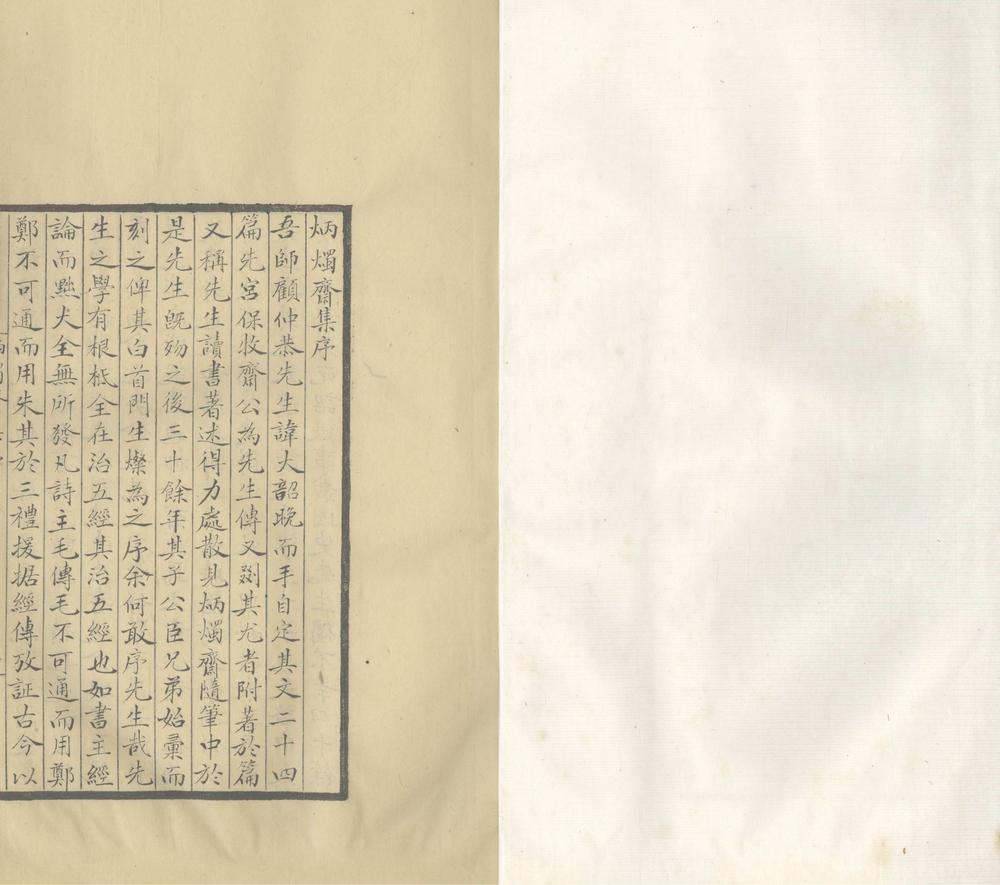 炳燭齋集序
吾師顧仲恭先生諱大韶晚而手自定其文二十四
篇先宮保牧齋公為先生傳又剟其尤者附著於篇
又稱先生讀書著述得力處散見炳燭齋隨筆中於
是先生旣歿之後三十餘年其子公臣兄弟始彙而
刻之俾其白首門生燦為之序余何敢序先生哉先
生之學有根柢全在治五經其治五經也如書主經
論而點犬全無所發凡詩主毛傳毛不可通而用鄭
鄭不可通而用朱其於三禮援据經傳攷証古今以